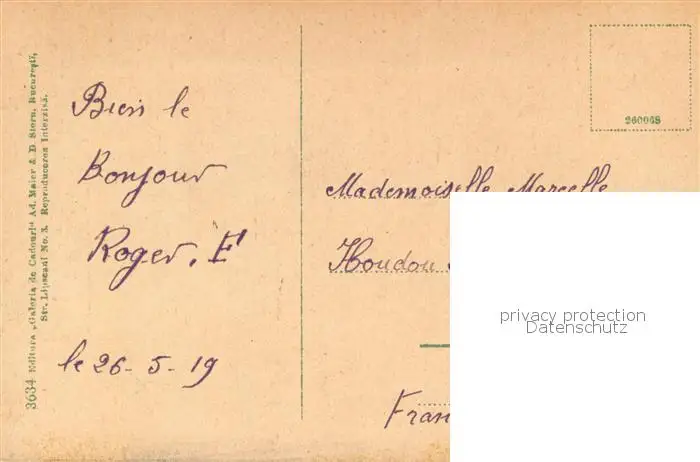 3634 Editura „Galeria de Cadouri“ Ad. Maier & D. Stern, București,
Str. Lipscani No. 3. Reproducerea Interzisă.
Bien le
Bonjour
Roger. F
le 26-5-19
260068
Mademoiselle Marcelle
Houdou
Fran
privacy protection
Datenschutz